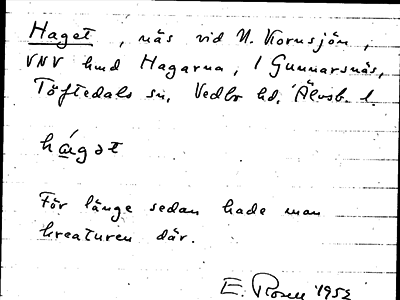 Haget, näs vid N. Kornsjön,
VNV hmd Hagarna, 1 Gunnarsnäs,
Töftedals sn, Vedbo hd, Älvsb. l.
hágət
För länge sedan hade man
kreaturen där.
E. Rosell 1952